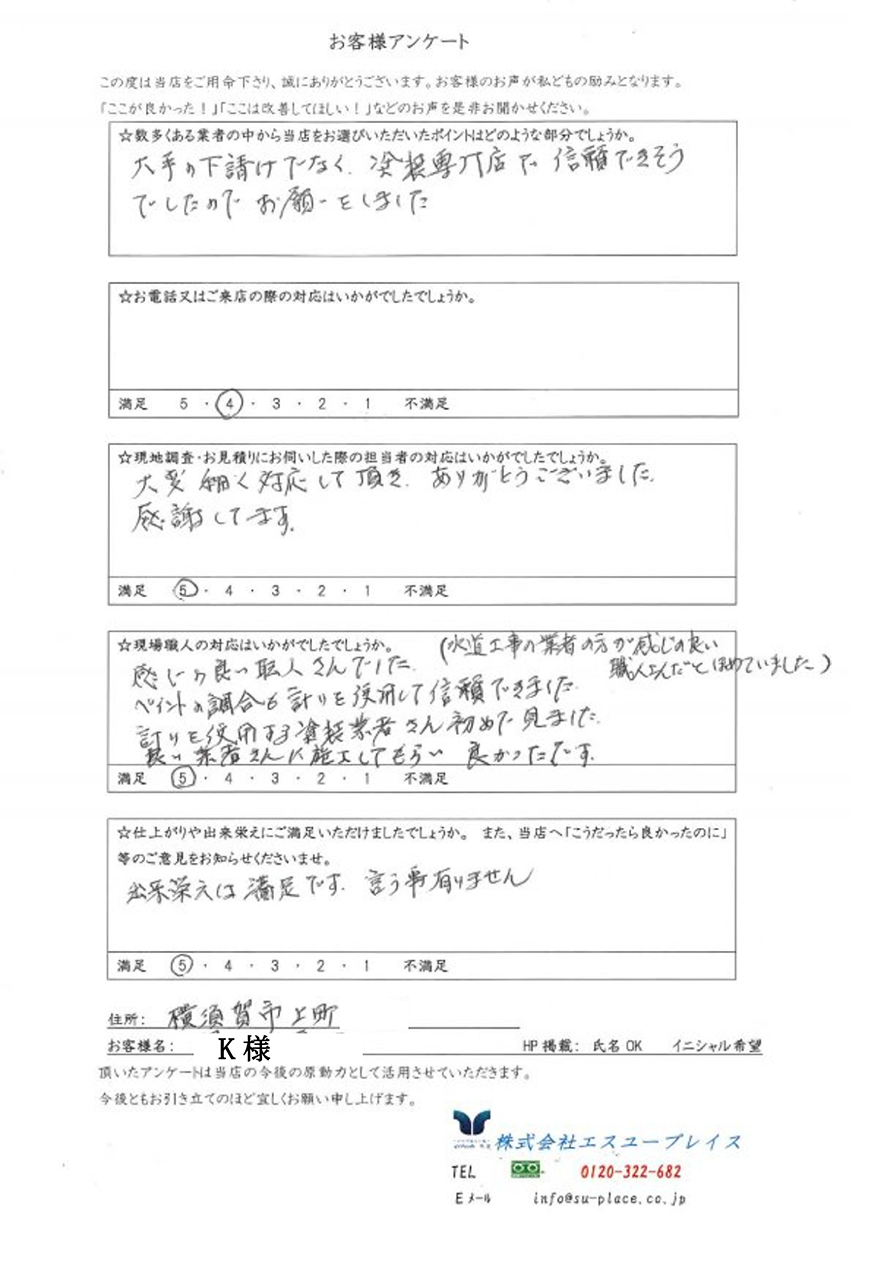 お客様アンケート
この度は当店をご用命下さり、誠にありがとうございます。お客様のお声が私どもの励みとなります。
「ここが良かった！」「ここは改善してほしい！」などのお声を是非お聞かせください。
☆数多くある業者の中から当店をお選びいただいたポイントはどのような部分でしょうか。
大手の下請けでなく、塗装専門店で信頼できそう
でしたのでお願いをしました
☆お電話又はご来店の際の対応はいかがでしたでしょうか。
満足 5 ・ 4 ・ 3 ・ 2 ・ 1 不満足
☆現地調査・お見積りにお伺いした際の担当者の対応はいかがでしたでしょうか。
大変細く対応して頂き、ありがとうございました。
感謝してます。
満足 5 ・ 4 ・ 3 ・ 2 ・ 1 不満足
☆現場職人の対応はいかがでしたでしょうか。
(水道工事の業者の方が感じの良い
職人さんだとほめていました)
感じの良い職人さんでした。
ペイントの調合も計りを使用して信頼できました。
計りを使用する塗装業者さん初めて見ました。
良い業者さんに施工してもらい良かったです。
満足 5 ・ 4 ・ 3 ・ 2 ・ 1 不満足
☆仕上がりや出来栄えにご満足いただけましたでしょうか。 また、当店へ「こうだったら良かったのに」
等のご意見をお知らせくださいませ。
出来栄えは満足です。言う事有りません
満足 5 ・ 4 ・ 3 ・ 2 ・ 1 不満足
住所： 横須賀市上町
お客様名： K様 HP掲載： 氏名OK イニシャル希望
頂いたアンケートは当店の今後の原動力として活用させていただきます。
今後ともお引き立てのほど宜しくお願い申し上げます。
株式会社エスユープレイス
TEL 0120-322-682
Eメール info@su-place.co.jp